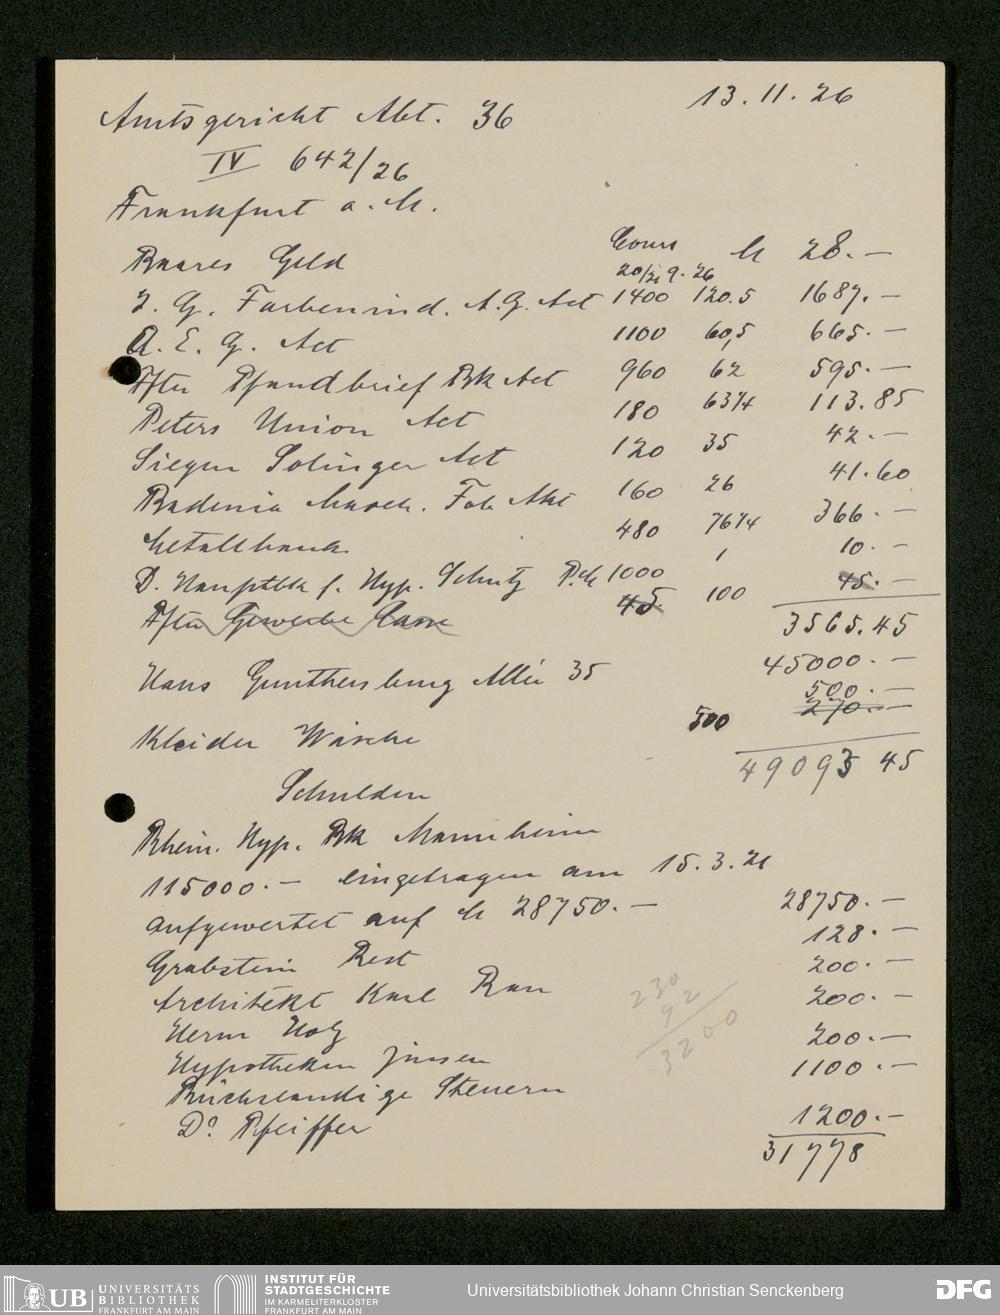 13.11.26
Amtsgericht Abt. 36
IV 642/26
Frankfurt a. M.
Cours
20/21 9.26
Baares Geld M 28.—
I. G. Farbenind. A.G. Act 1400 120.5 1687.—
A. E. G. Act 1100 60,5 665.—
Pfandbrief Bk Act 960 62 595.—
Peters Union Act 180 63 1/4 113.85
Siegen Solinger Act 120 35 42.—
Badenia Masch. Fab Akt 160 26 41.60
Metallbank 480 76 1/4 366.—
D. Hauptbk f. Hyp. Schutz P.M 1000 1 10.—
Gewerbe Casse 45 100 45.—
3565.45
Haus Gunthersburg Allee 35 45000.—
500.—
270.—
Kleider Wäsche 500
49093 45
Schulden
Rhein. Hyp. Bk Mannheim
115000.— eingetragen am 15.3.21
aufgewertet auf M 28750.— 28750.—
Grabstein Rest 128.—
Architekt Karl Rau 200.—
Herm Holz 200.—
Hypotheken Zinsen 200.—
Rückständige Steuern 1100.—
Dr Pfeiffer 1200.—
31778
230
92
3200
UB UNIVERSITÄTS
BIBLIOTHEK
FRANKFURT AM MAIN
INSTITUT FÜR
STADTGESCHICHTE
IM KARMELITERKLOSTER
FRANKFURT AM MAIN
Universitätsbibliothek Johann Christian Senckenberg
DFG